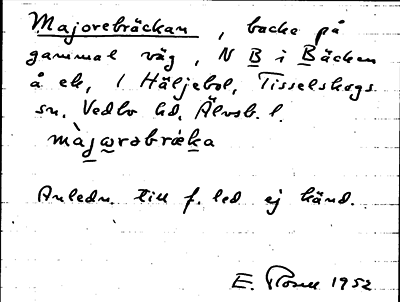 Majorebräckan, backe på
gammal väg, N B i Bäcken
å ek, 1 Häljebol, Tisselskogs
sn. Vedbo hd. Älvsb. l.
màjωrəbrǽka
Anledn. till f. led ej känd.
E. Rosell 1952